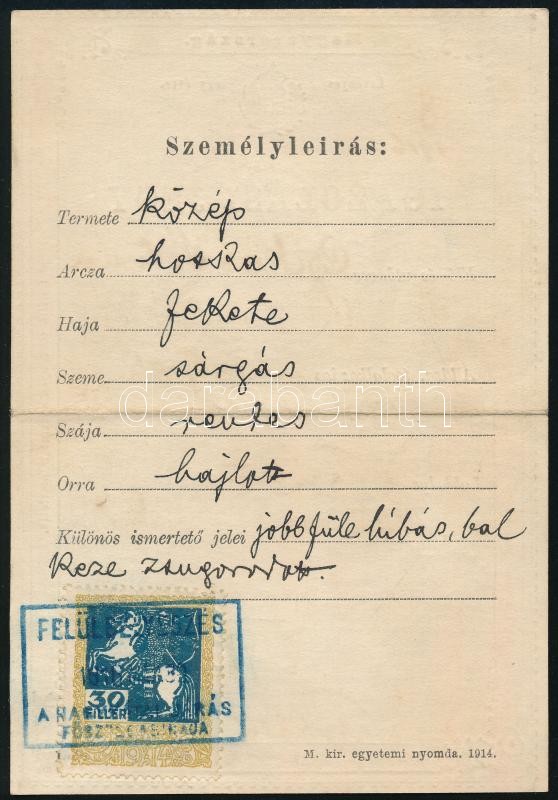 Személyleirás:
Termete közép
Arcza hosszas
Haja fekete
Szeme sárgás
Szája rendes
Orra hajlott
darabanth
Különös ismertető jelei jobb füle hibás, bal
keze zsugorodott.
30
FILLÉR
1914
M. kir. egyetemi nyomda. 1914.